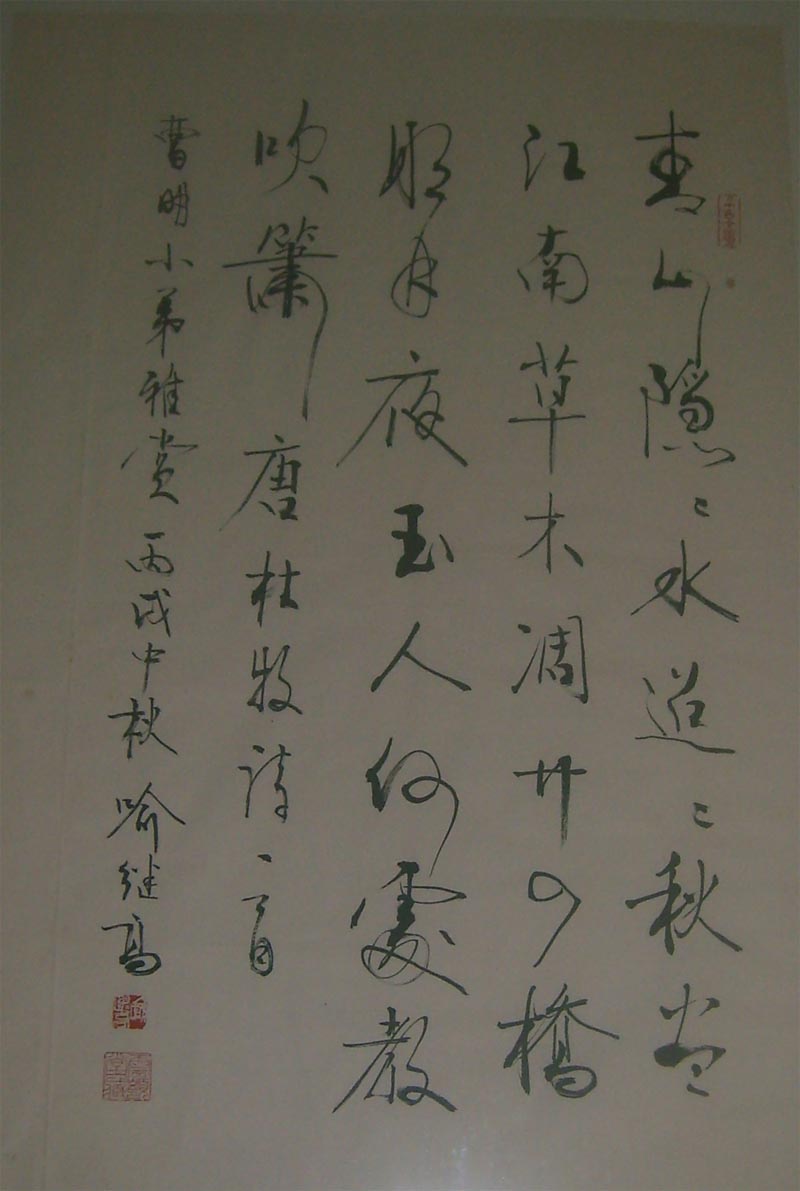 青山隐〻水迢〻秋尽
江南草木凋廿四橋
明月夜玉人何處教
吹簫 唐杜牧詩一首
曹明小弟雅赏 丙戌中秋 喻继高